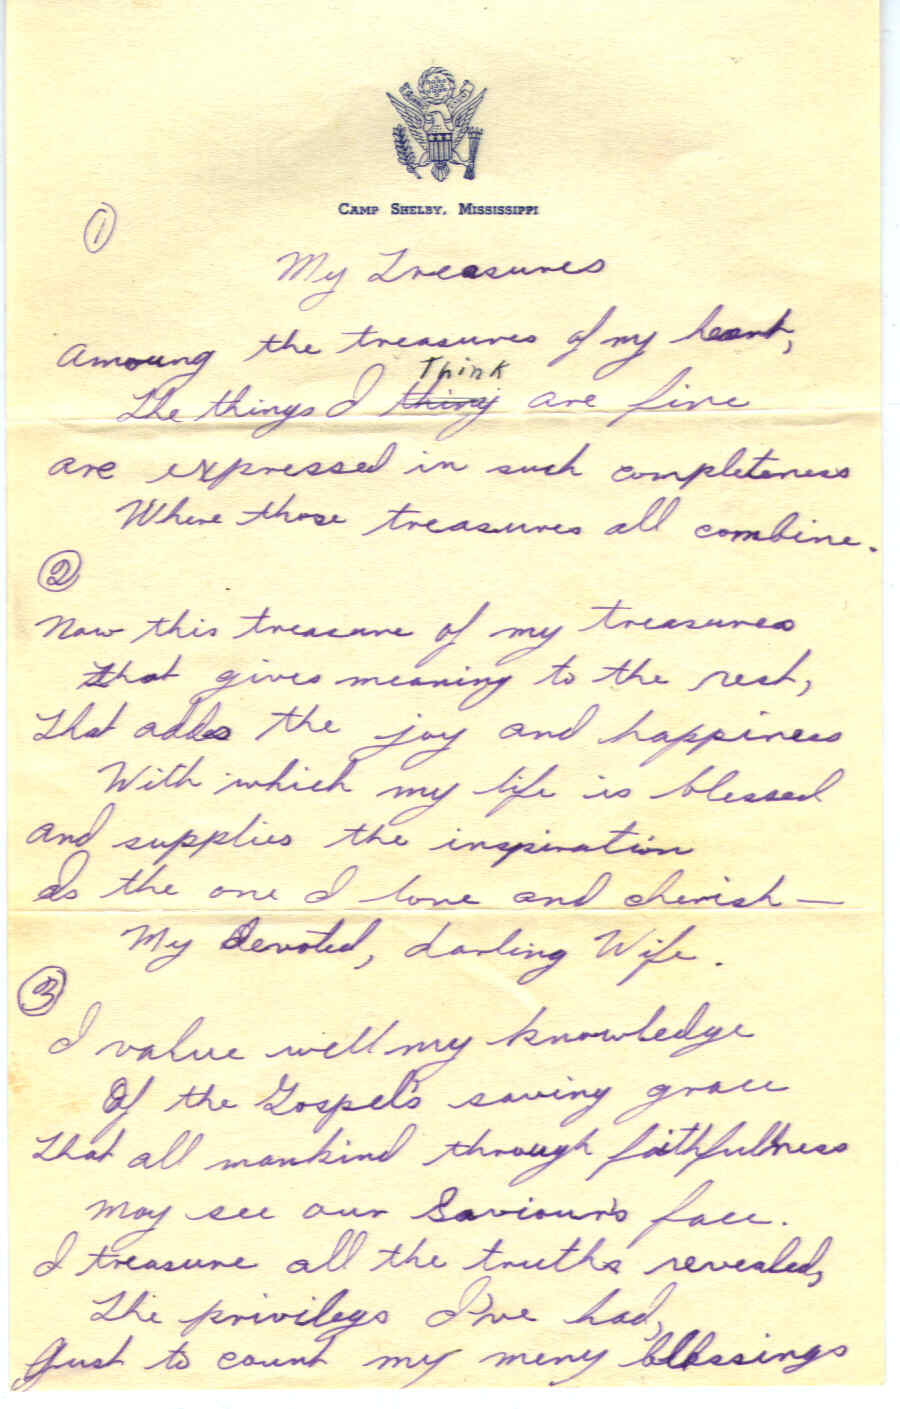 CAMP SHELBY, MISSISSIPPI
①
My Treasures
Amoung the treasures of my heart,
Think
The things I thinj are fine
are expressed in such completeness
Where those treasures all combine.
②
Now this treasure of my treasures
That gives meaning to the rest,
That adds the joy and happiness
With which my life is blessed
And supplies the inspiration
Is the one I love and cherish —
My Devoted, darling Wife.
③
I value well my knowledge
Of the Gospel's saving grace
That all mankind through faithfullness
May see our Saviour's face.
I treasure all the truths revealed,
The privilegs I've had,
Just to count my meny blessings